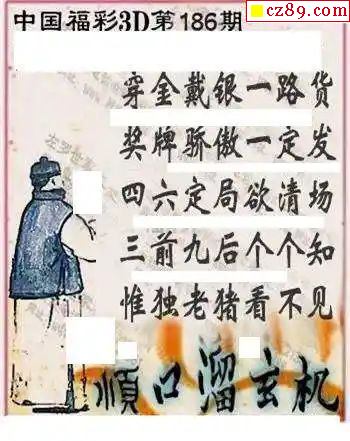 中国福彩3D第186期
cz89.com
穿金戴银一路货
奖牌骄傲一定发
四六定局欲清场
三前九后个个知
惟独老猪看不见
順口溜玄机